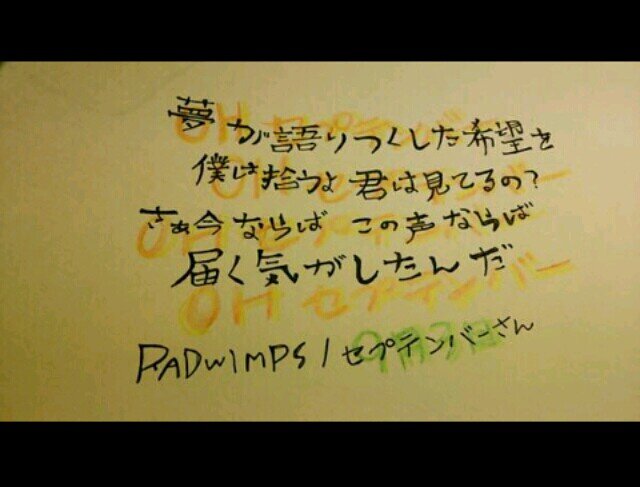 OH セプテンバー
夢が語りつくした希望を
OH セプテンバー
僕は拾うよ 君は見てるの?
OH セプテンバー
さぁ今ならば この声ならば
OH セプテンバー
届く気がしたんだ
RADWIMPS / セプテンバーさん